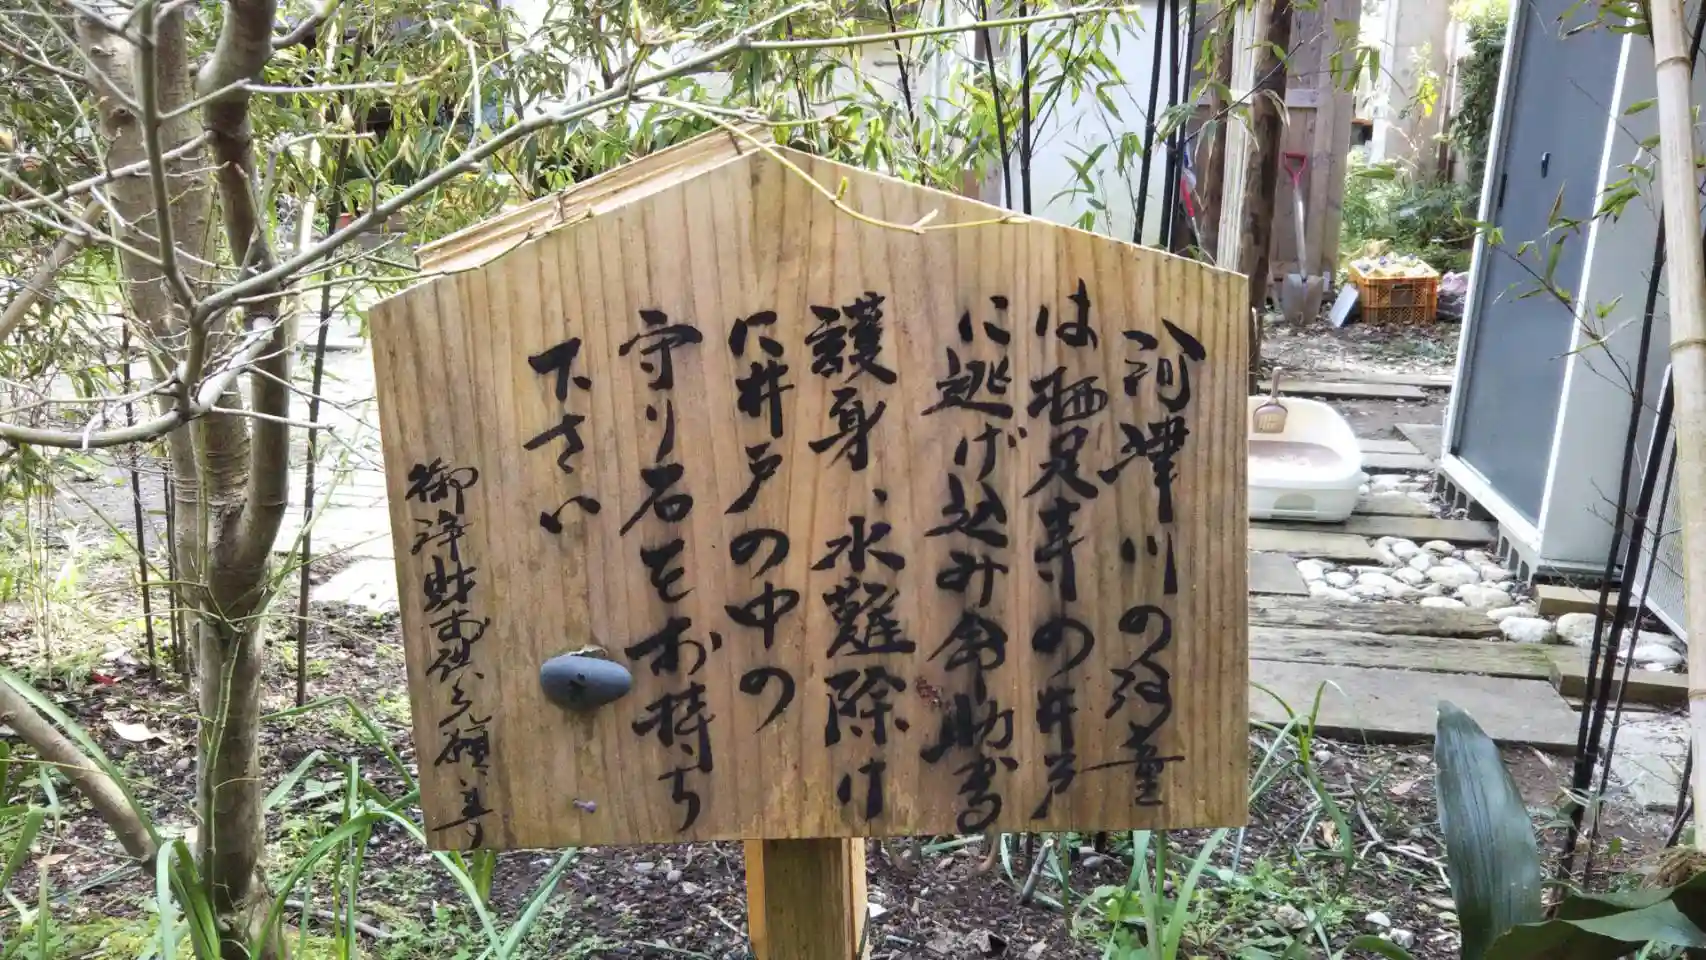 河津川の河童
は栖足寺の井戸
に逃げ込み命助る
護身、水難除け
に井戸の中の
守り石をお持ち
下さい
御浄財お供え願います